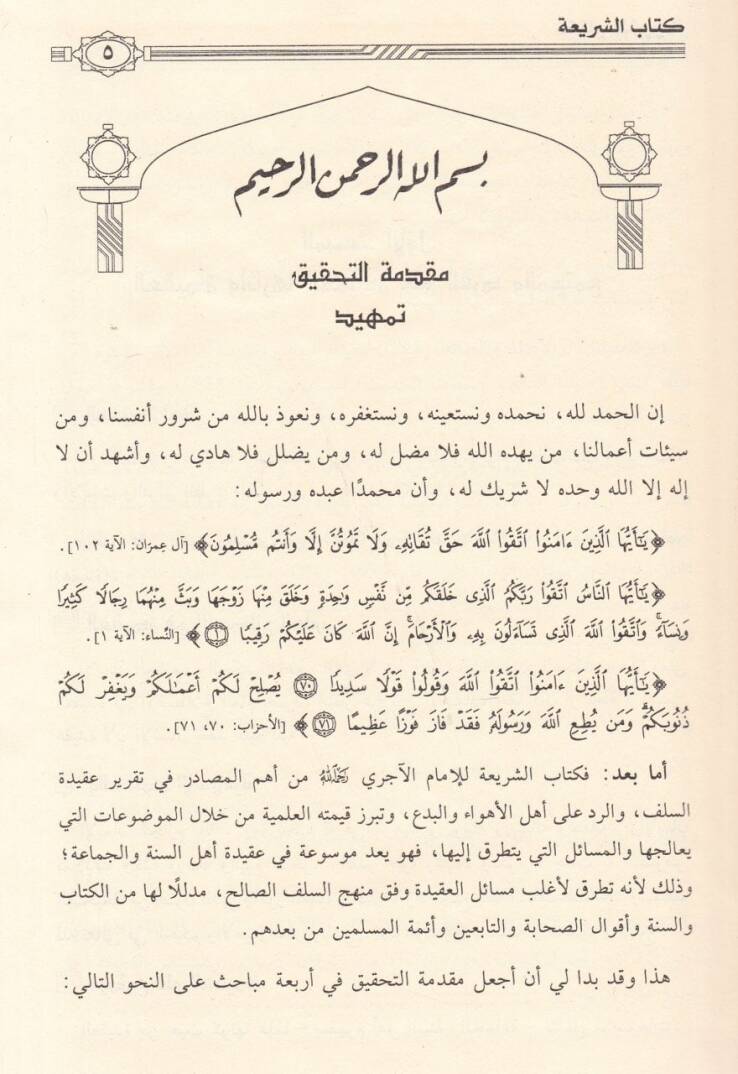 كتاب الشريعة
٥
بسم الله الرحمن الرحيم
مقدمة التحقيق
تمهيد
إن الحمد لله، نحمده ونستعينه، ونستغفره، ونعوذ بالله من شرور أنفسنا، ومن
سيئات أعمالنا، من يهده الله فلا مضل له، ومن يضلل فلا هادي له، وأشهد أن لا
إله إلا الله وحده لا شريك له، وأن محمدًا عبده ورسوله:
﴿يَٰٓأَيُّهَا ٱلَّذِينَ ءَامَنُوا۟ ٱتَّقُوا۟ ٱللَّهَ حَقَّ تُقَاتِهِۦ وَلَا تَمُوتُنَّ إِلَّا وَأَنتُم مُّسْلِمُونَ﴾ [آل عِمرَان: الآية ١٠٢].
﴿يَٰٓأَيُّهَا ٱلنَّاسُ ٱتَّقُوا۟ رَبَّكُمُ ٱلَّذِى خَلَقَكُم مِّن نَّفْسٍ وَٰحِدَةٍ وَخَلَقَ مِنْهَا زَوْجَهَا وَبَثَّ مِنْهُمَا رِجَالًا كَثِيرًا
وَنِسَآءً ۚ وَٱتَّقُوا۟ ٱللَّهَ ٱلَّذِى تَسَآءَلُونَ بِهِۦ وَٱلْأَرْحَامَ ۚ إِنَّ ٱللَّهَ كَانَ عَلَيْكُمْ رَقِيبًا ١﴾ [النِّساء: الآية ١].
﴿يَٰٓأَيُّهَا ٱلَّذِينَ ءَامَنُوا۟ ٱتَّقُوا۟ ٱللَّهَ وَقُولُوا۟ قَوْلًا سَدِيدًا ٧٠ يُصْلِحْ لَكُمْ أَعْمَٰلَكُمْ وَيَغْفِرْ لَكُمْ
ذُنُوبَكُمْ ۗ وَمَن يُطِعِ ٱللَّهَ وَرَسُولَهُۥ فَقَدْ فَازَ فَوْزًا عَظِيمًا ٧١﴾ [الأحزاب: ٧٠، ٧١].
أما بعد: فكتاب الشريعة للإمام الآجري رَحِمَهُ اللَّهُ من أهم المصادر في تقرير عقيدة
السلف، والرد على أهل الأهواء والبدع، وتبرز قيمته العلمية من خلال الموضوعات التي
يعالجها والمسائل التي يتطرق إليها، فهو يعد موسوعة في عقيدة أهل السنة والجماعة؛
وذلك لأنه تطرق لأغلب مسائل العقيدة وفق منهج السلف الصالح، مدللًا لها من الكتاب
والسنة وأقوال الصحابة والتابعين وأئمة المسلمين من بعدهم.
هذا وقد بدا لي أن أجعل مقدمة التحقيق في أربعة مباحث على النحو التالي: